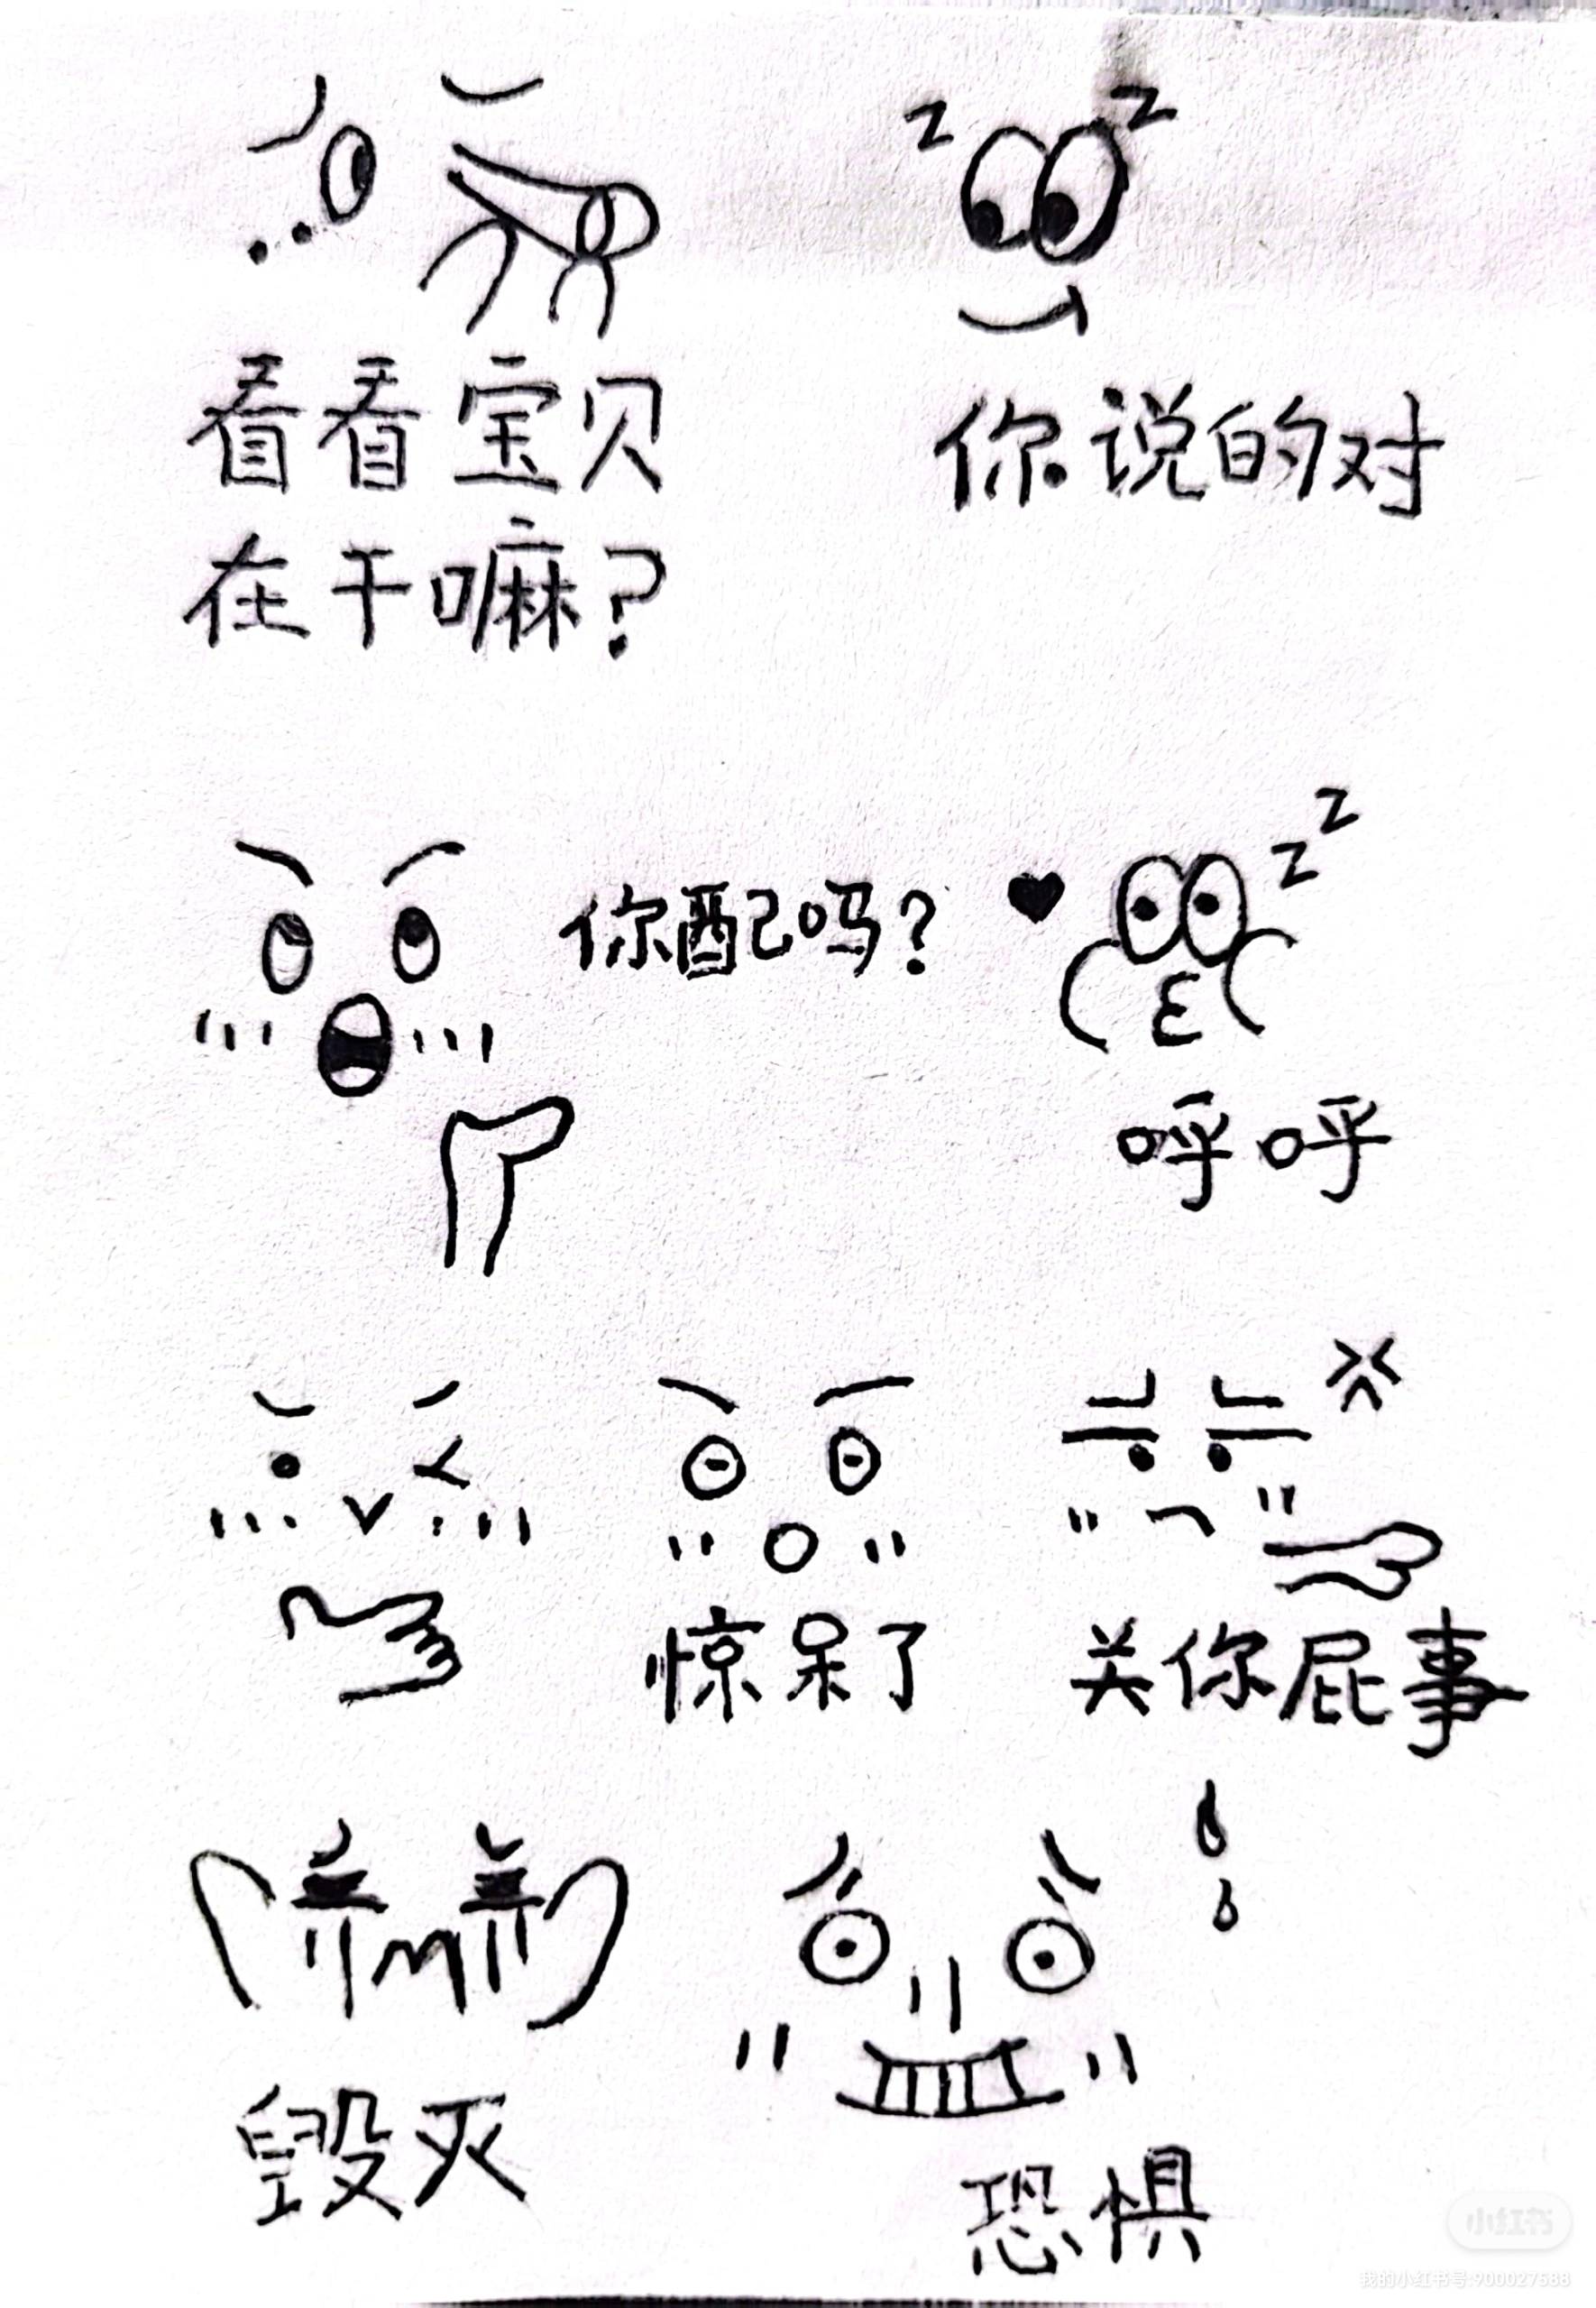 z z
看看宝贝
在干嘛？
你说的对
你配吗？
z z
呼呼
惊呆了
关你屁事
毁灭
恐惧
小红书
我的小红书号:900027588